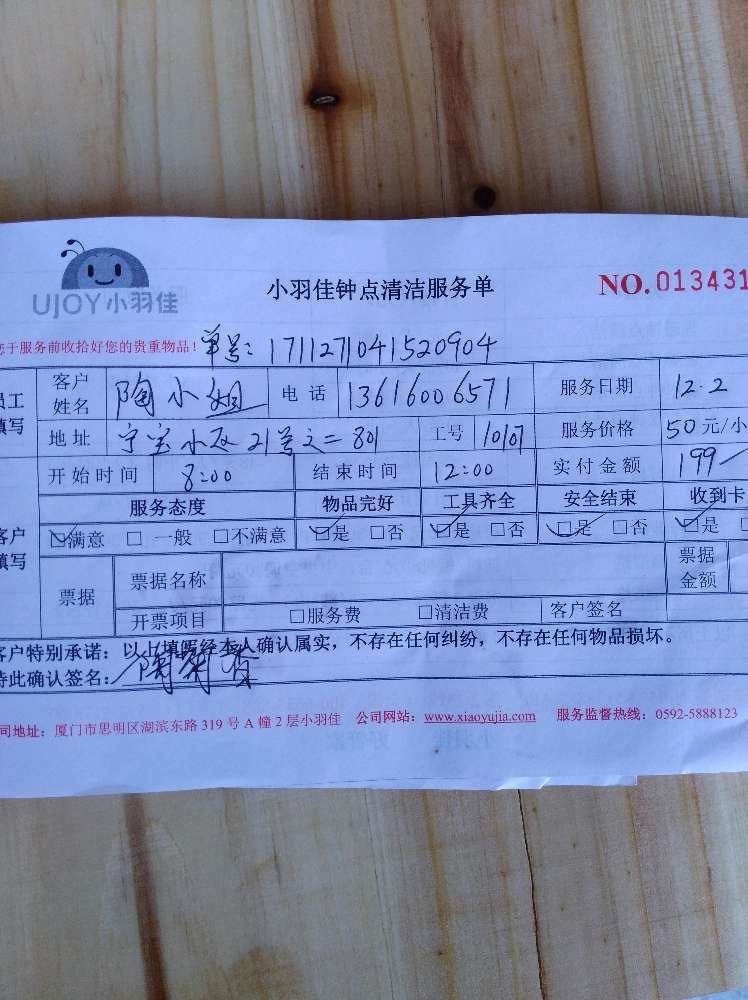 UJOY小羽佳
小羽佳钟点清洁服务单
NO.013431
您于服务前收拾好您的贵重物品！单号：1711271041520904
员工填写
客户姓名 陶小姐 电话 13616006571 服务日期 12.2
地址 宁宝小区21号之二801 工号 10107 服务价格 50元/小
开始时间 8:00 结束时间 12:00 实付金额 199
客户填写
服务态度 物品完好 工具齐全 安全结束 收到卡
☑满意 □一般 □不满意 ☑是 □否 ☑是 □否 ☑是 □否 ☑是
票据 票据名称 票据金额
开票项目 □服务费 □清洁费 客户签名
客户特别承诺：以上填写经本人确认属实，不存在任何纠纷，不存在任何物品损坏。
特此确认签名：陶
司地址：厦门市思明区湖滨东路319号A幢2层小羽佳 公司网站：www.xiaoyujia.com 服务监督热线：0592-5888123